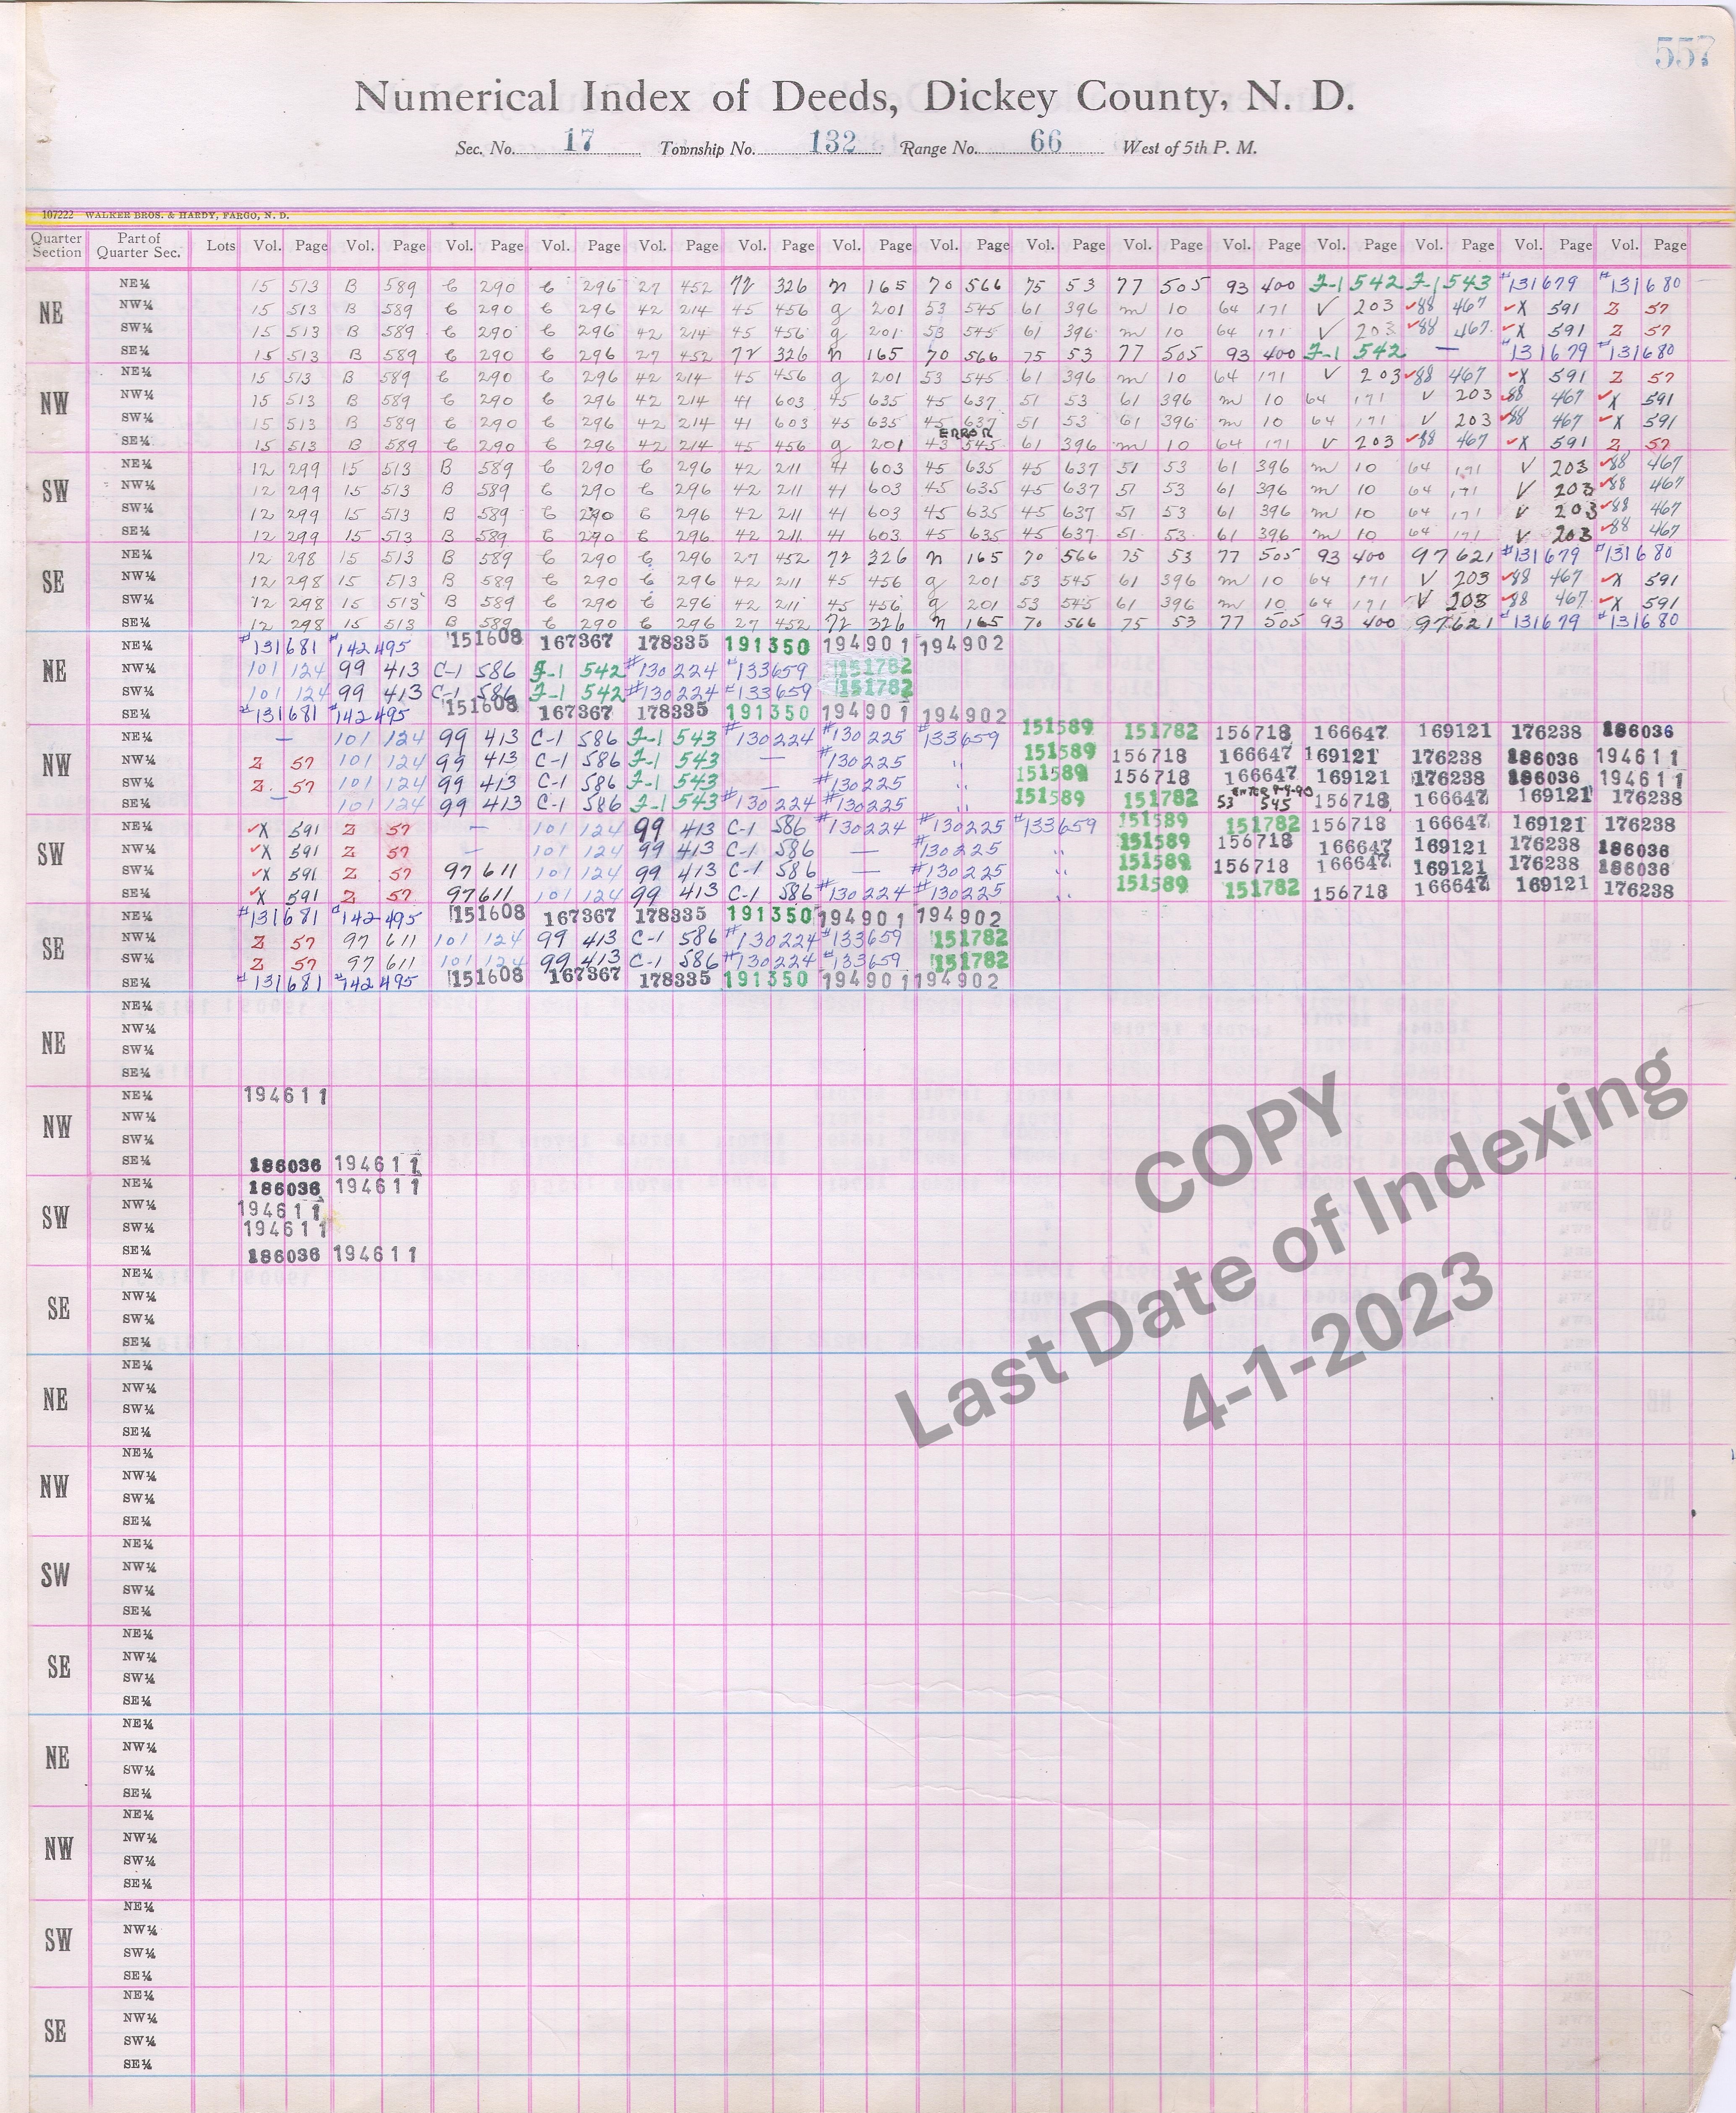 557
Numerical Index of Deeds, Dickey County, N. D.
Sec. No. 17 Township No. 132 Range No. 66 West of 5th P. M.
107222 WALKER BROS. & HARDY, FARGO, N. D.
Quarter Section Part of Quarter Sec. Lots Vol. Page Vol. Page Vol. Page Vol. Page Vol. Page Vol. Page Vol. Page Vol. Page Vol. Page Vol. Page Vol. Page Vol. Page Vol. Page Vol. Page Vol. Page
NE
NE¼ 15 513 B 589 C 290 C 296 27 452 72 326 n 165 70 566 75 53 77 505 93 400 F-1 542 F-1 543 #131679 #131680
NW¼ 15 513 B 589 C 290 C 296 42 214 45 456 g 201 53 545 61 396 m 10 64 171 V 203 ✓88 467 ✓X 591 Z 57
SW¼ 15 513 B 589 C 290 C 296 42 214 45 456 g 201 53 545 61 396 m 10 64 171 V 203 ✓88 467 ✓X 591 Z 57
SE¼ 15 513 B 589 C 290 C 296 27 452 72 326 n 165 70 566 75 53 77 505 93 400 F-1 542 — #131679 #131680
NW
NE¼ 15 513 B 589 C 290 C 296 42 214 45 456 g 201 53 545 61 396 m 10 64 171 V 203 ✓88 467 ✓X 591 Z 57
NW¼ 15 513 B 589 C 290 C 296 42 214 41 603 45 635 45 637 51 53 61 396 m 10 64 171 V 203 ✓88 467 ✓X 591
SW¼ 15 513 B 589 C 290 C 296 42 214 41 603 45 635 45 637 51 53 61 396 m 10 64 171 V 203 ✓88 467 ✓X 591
ERROR
SE¼ 15 513 B 589 C 290 C 296 42 214 45 456 g 201 43 545 61 396 m 10 64 171 V 203 ✓88 467 ✓X 591 Z 57
SW
NE¼ 12 299 15 513 B 589 C 290 C 296 42 211 41 603 45 635 45 637 51 53 61 396 m 10 64 171 V 203 ✓88 467
NW¼ 12 299 15 513 B 589 C 290 C 296 42 211 41 603 45 635 45 637 51 53 61 396 m 10 64 171 V 203 ✓88 467
SW¼ 12 299 15 513 B 589 C 290 C 296 42 211 41 603 45 635 45 637 51 53 61 396 m 10 64 171 V 203 ✓88 467
SE¼ 12 299 15 513 B 589 C 290 C 296 42 211 41 603 45 635 45 637 51 53 61 396 m 10 64 171 V 203 ✓88 467
SE
NE¼ 12 298 15 513 B 589 C 290 C 296 27 452 72 326 n 165 70 566 75 53 77 505 93 400 97 621 #131679 #131680
NW¼ 12 298 15 513 B 589 C 290 C 296 42 211 45 456 g 201 53 545 61 396 m 10 64 171 V 203 ✓88 467 ✓X 591
SW¼ 12 298 15 513 B 589 C 290 C 296 42 211 45 456 g 201 53 545 61 396 m 10 64 171 V 203 ✓88 467 ✓X 591
SE¼ 12 298 15 513 B 589 C 290 C 296 27 452 72 326 n 165 70 566 75 53 77 505 93 400 97 621 #131679 #131680
NE
NE¼ #131681 #142495 151608 167367 178335 191350 194901 194902
NW¼ 101 124 99 413 C-1 586 F-1 542 #130224 #133659 151782
SW¼ 101 124 99 413 C-1 586 F-1 542 #130224 #133659 151782
SE¼ #131681 #142495 151608 167367 178335 191350 194901 194902
NW
NE¼ — 101 124 99 413 C-1 586 F-1 543 #130224 #130225 133659 151589 151782 156718 166647 169121 176238 186036
NW¼ Z 57 101 124 99 413 C-1 586 F-1 543 — #130225 " 151589 156718 166647 169121 176238 186036 194611
SW¼ Z 57 101 124 99 413 C-1 586 F-1 543 — #130225 " 151589 156718 166647 169121 176238 186036 194611
SE¼ — 101 124 99 413 C-1 586 F-1 543 #130224 #130225 " 151589 151782 53 545 156718 166647 169121 176238
SW
NE¼ ✓X 591 Z 57 — 101 124 99 413 C-1 586 #130224 #130225 #133659 151589 151782 156718 166647 169121 176238
NW¼ ✓X 591 Z 57 — 101 124 99 413 C-1 586 — #130225 " 151589 156718 166647 169121 176238 186036
SW¼ ✓X 591 Z 57 97 611 101 124 99 413 C-1 586 — #130225 " 151589 156718 166647 169121 176238 186036
SE¼ ✓X 591 Z 57 97 611 101 124 99 413 C-1 586 #130224 #130225 " 151589 151782 156718 166647 169121 176238
SE
NE¼ #131681 #142495 151608 167367 178335 191350 194901 194902
NW¼ Z 57 97 611 101 124 99 413 C-1 586 #130224 #133659 151782
SW¼ Z 57 97 611 101 124 99 413 C-1 586 #130224 #133659 151782
SE¼ #131681 #142495 151608 167367 178335 191350 194901 194902
NE
NE¼
NW¼
SW¼
SE¼
NW
NE¼ 194611
NW¼
SW¼
SE¼ 186036 194611
SW
NE¼ 186036 194611
NW¼ 194611
SW¼ 194611
SE¼ 186036 194611
SE
NE¼
NW¼
SW¼
SE¼
COPY
Last Date of Indexing
4-1-2023
NE
NE¼
NW¼
SW¼
SE¼
NW
NE¼
NW¼
SW¼
SE¼
SW
NE¼
NW¼
SW¼
SE¼
SE
NE¼
NW¼
SW¼
SE¼
NE
NE¼
NW¼
SW¼
SE¼
NW
NE¼
NW¼
SW¼
SE¼
SW
NE¼
NW¼
SW¼
SE¼
SE
NE¼
NW¼
SW¼
SE¼